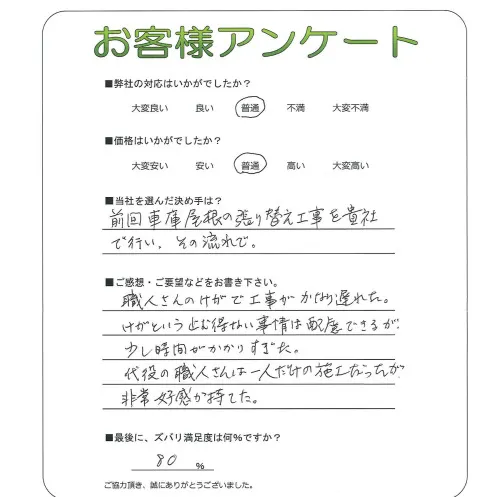 お客様アンケート
■弊社の対応はいかがでしたか？
大変良い 良い 普通 不満 大変不満
■価格はいかがでしたか？
大変安い 安い 普通 高い 大変高い
■当社を選んだ決め手は？
前回車庫屋根の張り替え工事を貴社
で行い、その流れで。
■ご感想・ご要望などをお書き下さい。
職人さんのけがで工事がかなり遅れた。
けがという止む得ない事情は配慮できるが、
少し時間がかかりすぎた。
代役の職人さんは一人だけの施工だったが
非常好感が持てた。
■最後に、ズバリ満足度は何%ですか？
80 %
ご協力頂き、誠にありがとうございました。